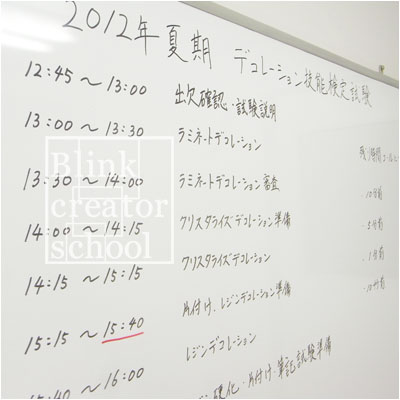 2012年 夏期 デコレーション技能検定試験
12:45 〜 13:00 出欠確認・試験説明
13:00 〜 13:30 ラミネートデコレーション
13:30 〜 14:00 ラミネートデコレーション審査
14:00 〜 14:15 クリスタライズデコレーション準備
14:15 〜 15:15 クリスタライズデコレーション
15:15 〜 15:40 片付け、レジンデコレーション準備
レジンデコレーション
15:40 〜 16:00 硬化・片付け・筆記試験準備
残り時間
10分前
5分前
1分前
10秒前
Blink
creator
school